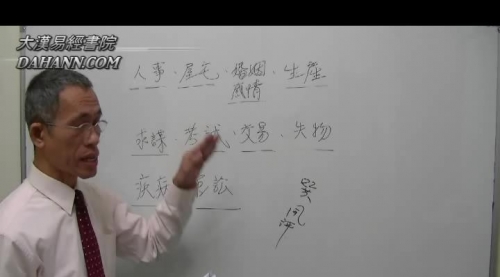 大漢易經書院
DAHANN.COM
人事、屋宅、婚姻、生產
感情
求謀、考試、交易、失物
疾病、官訟
巽
風